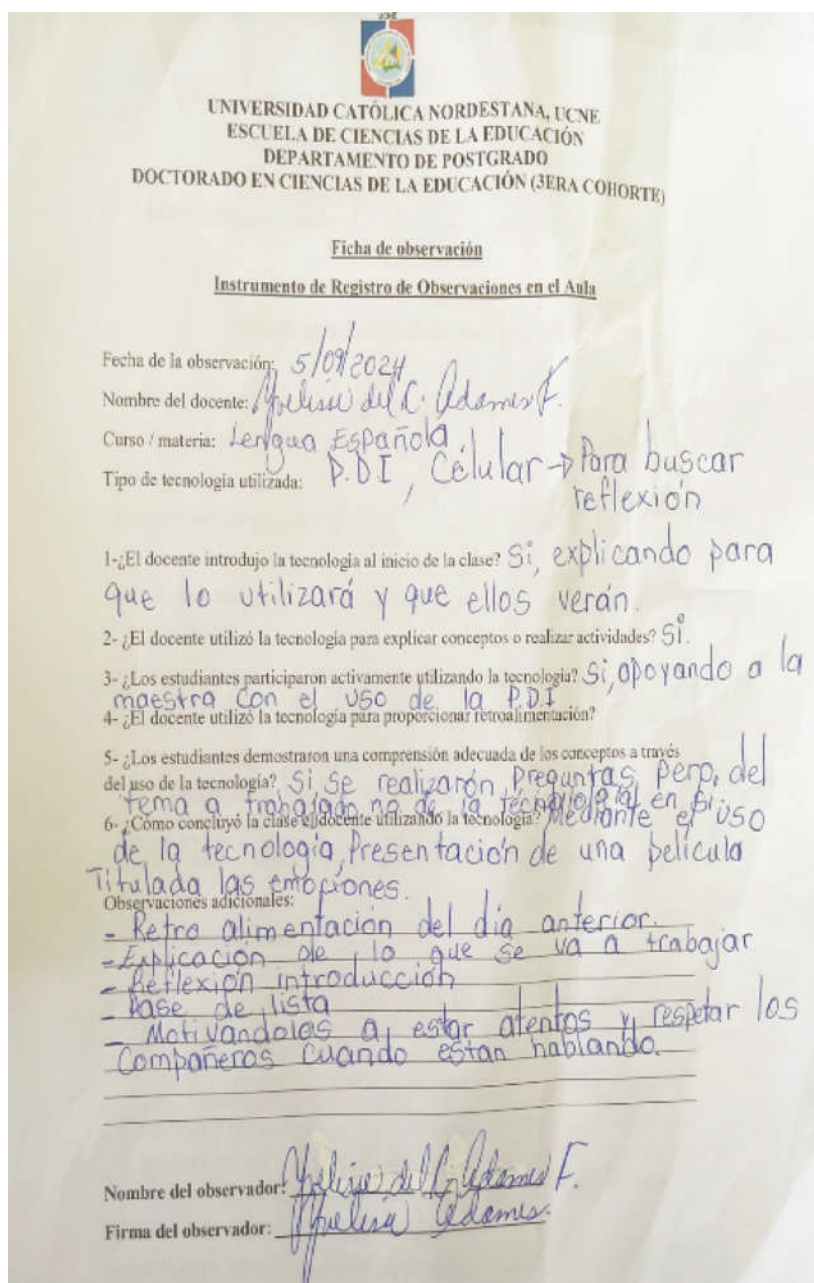 UNIVERSIDAD CATÓLICA NORDESTANA, UCNE
ESCUELA DE CIENCIAS DE LA EDUCACIÓN
DEPARTAMENTO DE POSTGRADO
DOCTORADO EN CIENCIAS DE LA EDUCACIÓN (3ERA COHORTE)
Ficha de observación
Instrumento de Registro de Observaciones en el Aula
Fecha de la observación: 5/09/2024
Nombre del docente: del C. Adames F.
Curso / materia: Lengua Española.
Tipo de tecnología utilizada: P.DI, Célular → Para buscar
reflexión
1-¿El docente introdujo la tecnología al inicio de la clase? Si, explicando para
que lo utilizará y que ellos verán.
2- ¿El docente utilizó la tecnología para explicar conceptos o realizar actividades? Si.
3- ¿Los estudiantes participaron activamente utilizando la tecnología? Si, apoyando a la
maestra con el uso de la P.DI
4- ¿El docente utilizó la tecnología para proporcionar retroalimentación?
5- ¿Los estudiantes demostraron una comprensión adecuada de los conceptos a través
del uso de la tecnología? Si se realizarón preguntas pero, del
tema a trabajado no de la tecnología en si.
6- ¿Cómo concluyó la clase el docente utilizando la tecnología? Mediante el uso
de la tecnología, Presentación de una película
Titulada las emociones.
Observaciones adicionales:
- Retro alimentación del dia anterior.
- Explicación de lo que se va a trabajar
- Reflexión introducción
- Pase de lista
- Motivandoles a estar atentos y respetar los
Compañeros cuando estan hablando.
Nombre del observador: del C. Adames F.
Firma del observador: Adames.